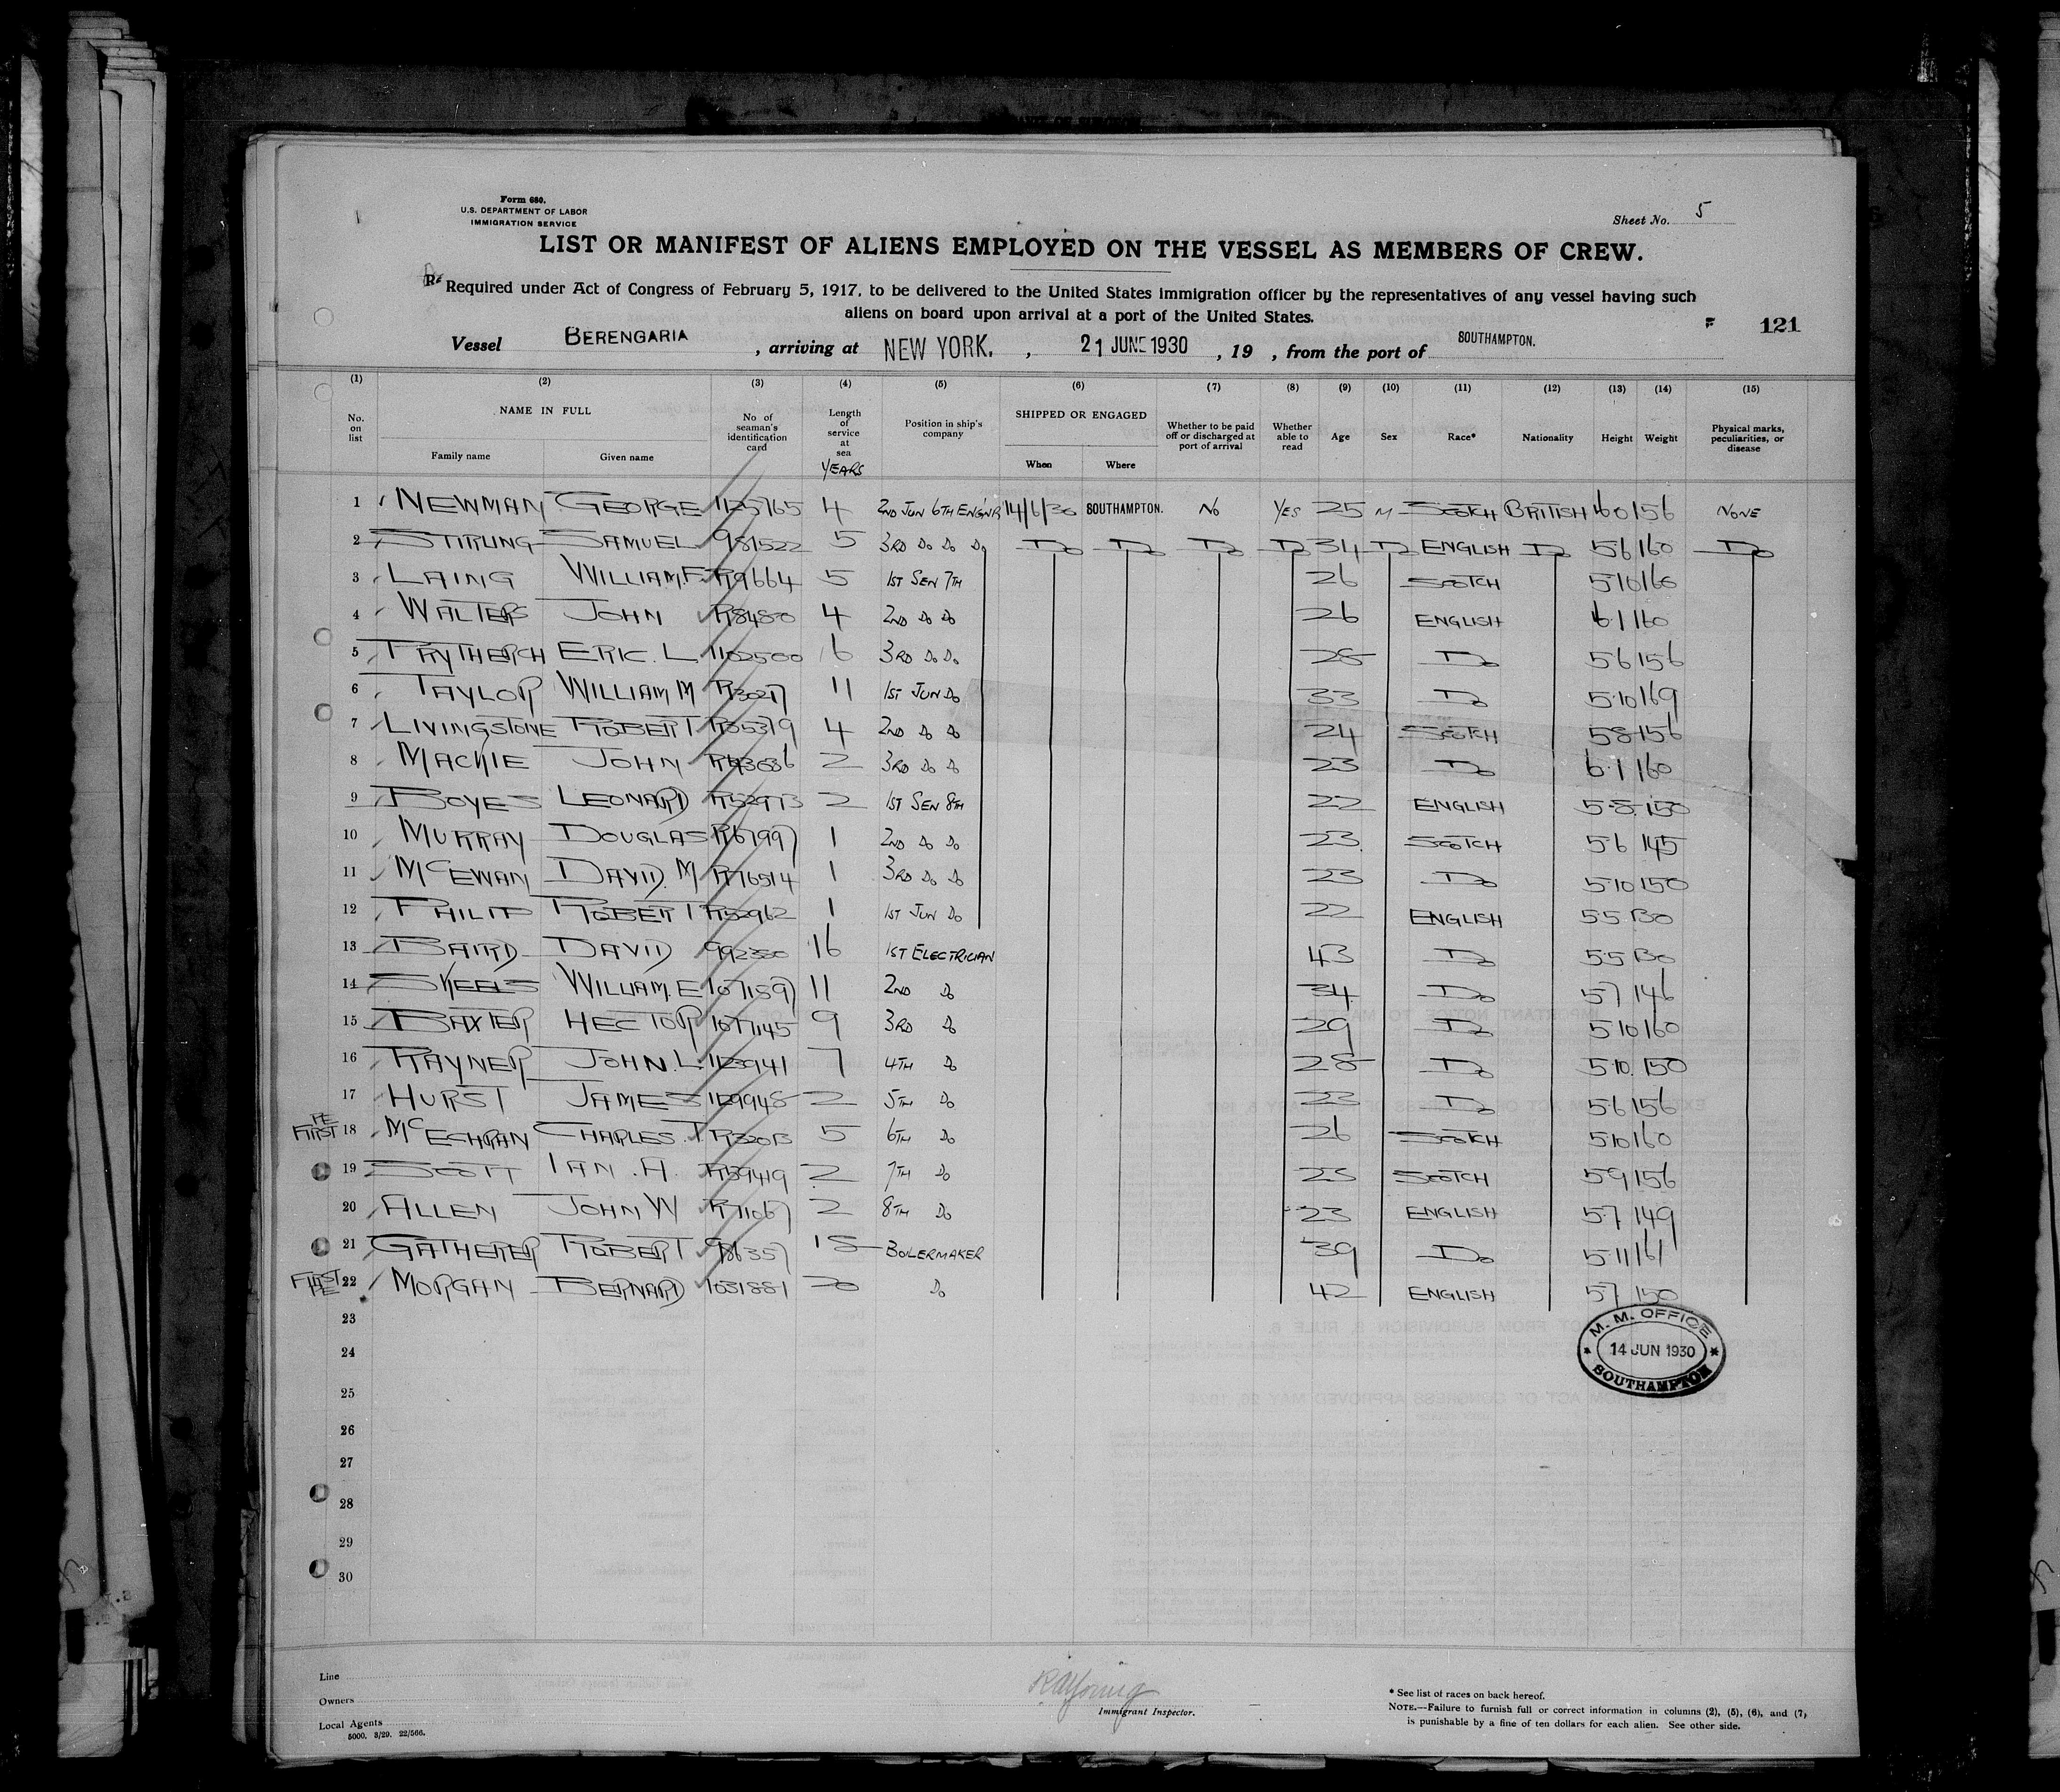 Form 680.
U.S. DEPARTMENT OF LABOR
IMMIGRATION SERVICE
Sheet No. 5
LIST OR MANIFEST OF ALIENS EMPLOYED ON THE VESSEL AS MEMBERS OF CREW.
Required under Act of Congress of February 5, 1917, to be delivered to the United States immigration officer by the representatives of any vessel having such
aliens on board upon arrival at a port of the United States.
121
Vessel BERENGARIA , arriving at NEW YORK. , 21 JUNE 1930 , 19 , from the port of SOUTHAMPTON.
(1) (2) (3) (4) (5) (6) (7) (8) (9) (10) (11) (12) (13) (14) (15)
No. on list NAME IN FULL Family name Given name No of seaman's identification card Length of service at sea YEARS Position in ship's company SHIPPED OR ENGAGED When Where Whether to be paid off or discharged at port of arrival Whether able to read Age Sex Race* Nationality Height Weight Physical marks, peculiarities, or disease
1 NEWMAN GEORGE 1125765 4 2ND JUN 6TH ENGNR 14/6/30 SOUTHAMPTON. NO YES 25 M SCOTCH BRITISH 60 156 NONE
2 STIRLING SAMUEL 981522 5 3RD DO DO DO DO DO DO DO 34 DO ENGLISH DO 56 160 DO
3 LAING WILLIAM.F. R19664 5 1ST SEN 7TH 26 SCOTCH 5·10 160
4 WALTERS JOHN R8480 4 2ND DO DO 26 ENGLISH 6·1 160
5 PRYTHERCH ERIC. L 1102500 6 3RD DO DO 28 DO 56 156
6 TAYLOR WILLIAM M R13027 11 1ST JUN DO 33 DO 5·10 169
7 LIVINGSTONE ROBERT R35379 4 2ND DO DO 24 SCOTCH 58 156
8 MACKIE JOHN 2 3RD DO DO 23 DO 6·1 160
9 BOYES LEONARD 2 1ST SEN 8TH 22 ENGLISH 5·8 150
10 MURRAY DOUGLAS R67997 1 2ND DO DO 23 SCOTCH 56 145
11 MCEWAN DAVID. M R76514 1 3RD DO DO 23 DO 5·10 150
12 PHILIP ROBERT R52962 1 1ST JUN DO 22 ENGLISH 55 130
13 BAIRD DAVID 992380 16 1ST ELECTRICIAN 43 DO 55 130
14 SKEELS WILLIAM. E 1071597 11 2ND DO 34 DO 57 146
15 BAXTER HECTOR 1077145 9 3RD DO 29 DO 5·10 160
16 RAYNER JOHN. L. 1123941 7 4TH DO 28 DO 5·10. 150
17 HURST JAMES 1129948 2 5TH DO 23 DO 5·6 156
FIRST 18 MCECHRAN CHARLES. T. R32013 5 6TH DO 26 SCOTCH 5·10 160
19 SCOTT IAN. A. R59419 2 7TH DO 23 SCOTCH 59 156
20 ALLEN JOHN W R71067 2 8TH DO 23 ENGLISH 57 149
21 GATHERER ROBERT 986357 18 BOILERMAKER 39 DO 5·11 161
FIRST 22 MORGAN BERNARD 1031881 20 DO 42 ENGLISH 57 150
23
24
25
26
27
28
29
30
M. M. OFFICE
14 JUN 1930
SOUTHAMPTON
Line
Owners
Local Agents
5000. 3/29. 22/566.
Immigrant Inspector.
* See list of races on back hereof.
NOTE.—Failure to furnish full or correct information in columns (2), (5), (6), and (7,
is punishable by a fine of ten dollars for each alien. See other side.